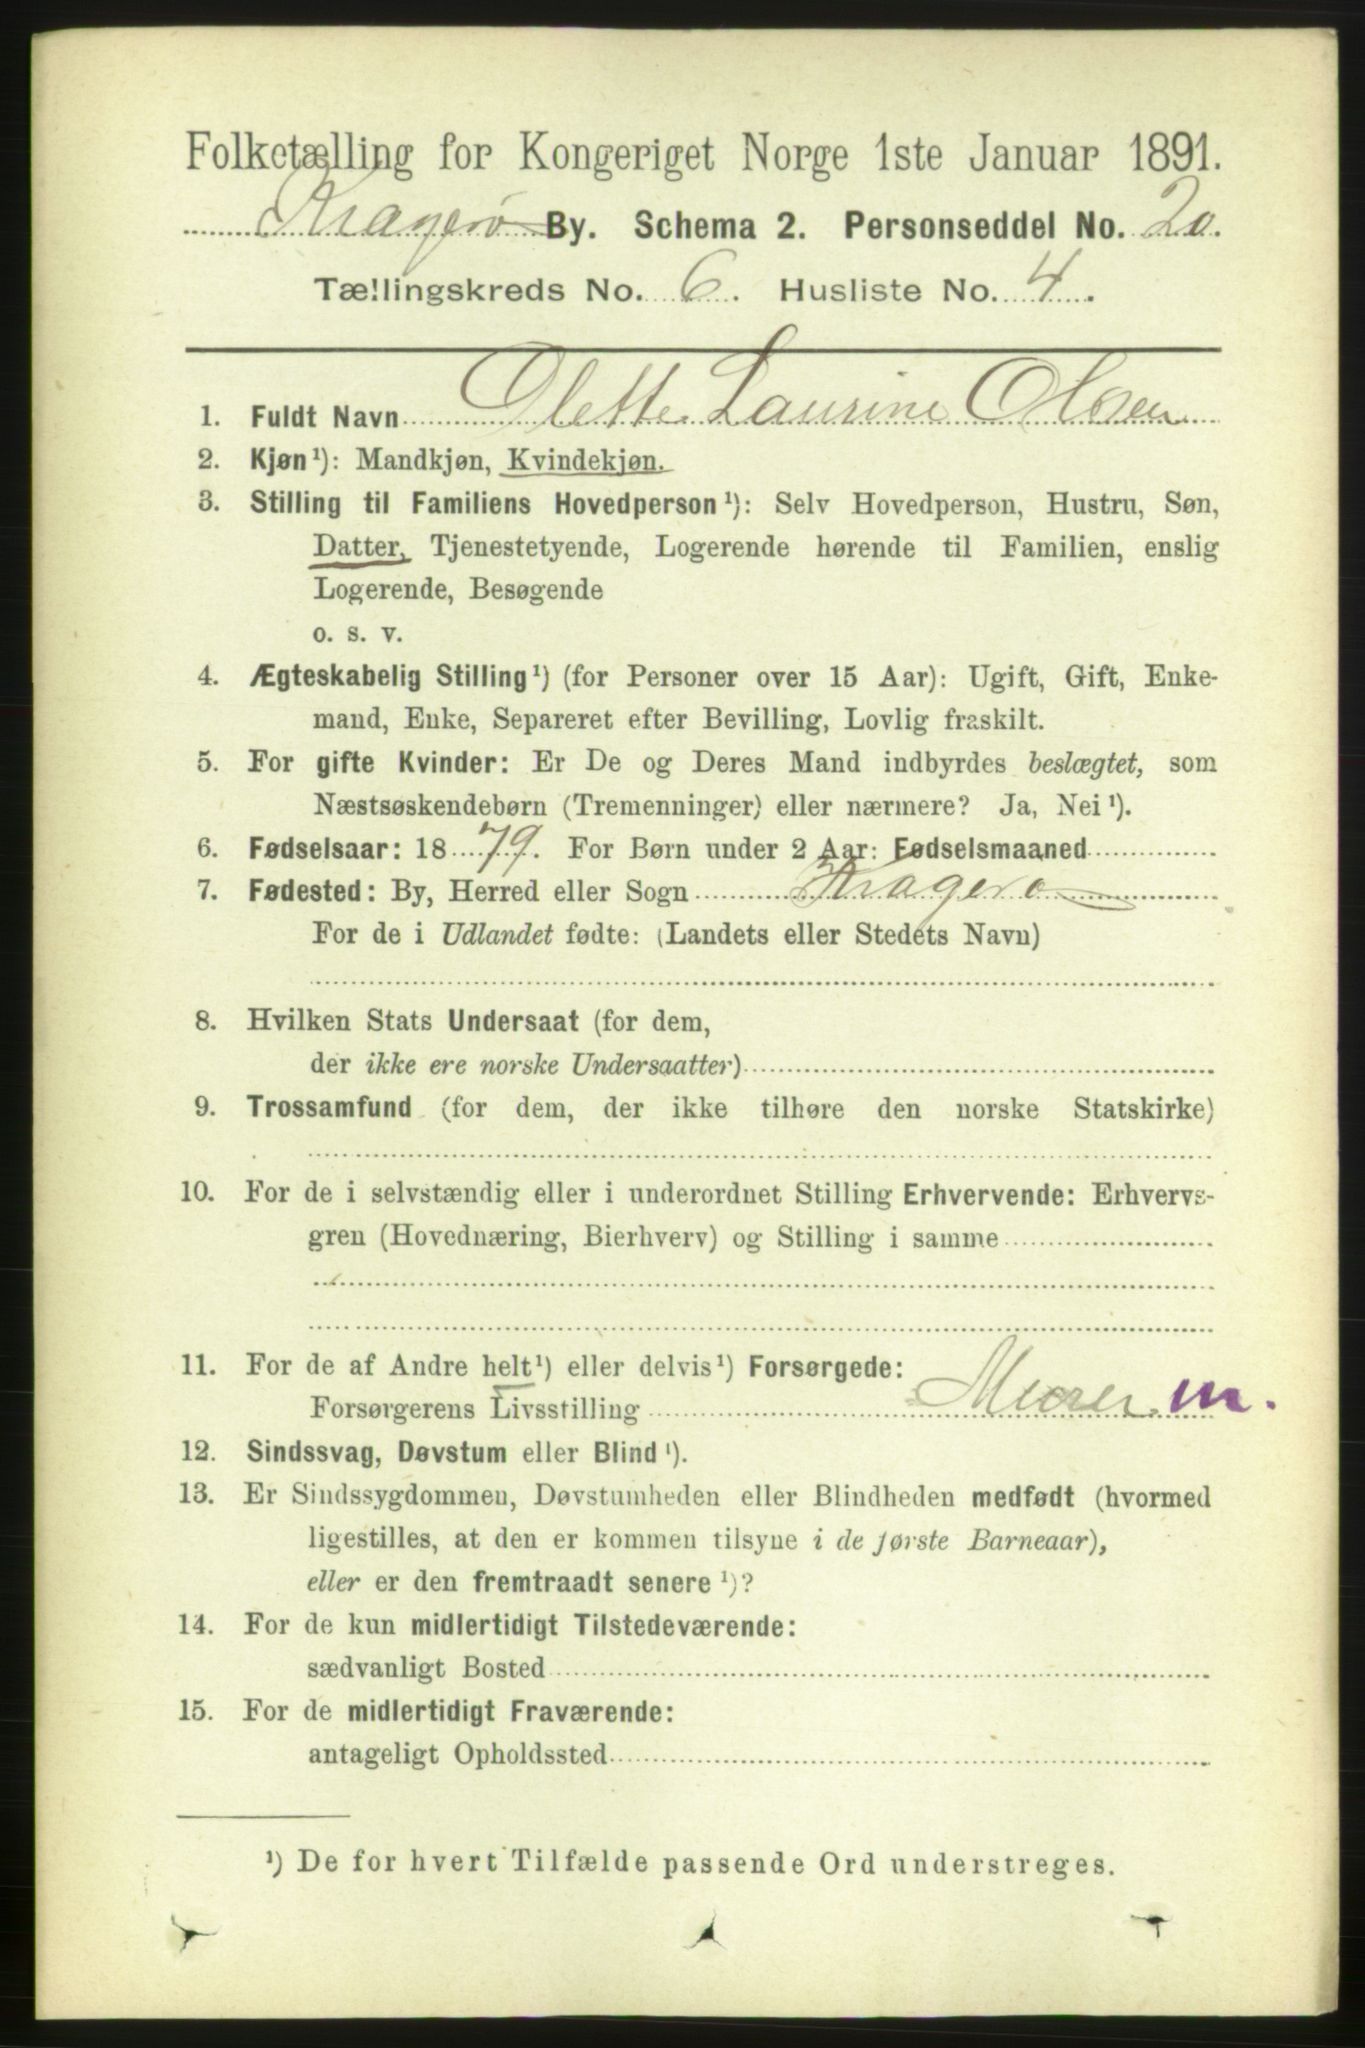 Folketælling for Kongeriget Norge 1ste Januar 1891.
Kragerø By. Schema 2. Personseddel No. 20.
Tællingskreds No. 6. Husliste No. 4.
1. Fuldt Navn Olette Laurine Olsen
2. Kjøn¹): Mandkjøn, Kvindekjøn.
3. Stilling til Familiens Hovedperson¹): Selv Hovedperson, Hustru, Søn,
Datter, Tjenestetyende, Logerende hørende til Familien, enslig
Logerende, Besøgende
o. s. v.
4. Ægteskabelig Stilling¹) (for Personer over 15 Aar): Ugift, Gift, Enke-
mand, Enke, Separeret efter Bevilling, Lovlig fraskilt.
5. For gifte Kvinder: Er De og Deres Mand indbyrdes beslægtet, som
Næstsøskendebørn (Tremenninger) eller nærmere? Ja, Nei¹).
6. Fødselsaar: 1879. For Børn under 2 Aar: Fødselsmaaned
7. Fødested: By, Herred eller Sogn Kragerø
For de i Udlandet fødte: (Landets eller Stedets Navn)
8. Hvilken Stats Undersaat (for dem,
der ikke ere norske Undersaatter)
9. Trossamfund (for dem, der ikke tilhøre den norske Statskirke)
10. For de i selvstændig eller i underordnet Stilling Erhvervende: Erhvervs-
gren (Hovednæring, Bierhverv) og Stilling i samme
11. For de af Andre helt¹) eller delvis¹) Forsørgede:
Forsørgerens Livsstilling Murer m.
12. Sindssvag, Døvstum eller Blind¹).
13. Er Sindssygdommen, Døvstumheden eller Blindheden medfødt (hvormed
ligestilles, at den er kommen tilsyne i de første Barneaar),
eller er den fremtraadt senere¹)?
14. For de kun midlertidigt Tilstedeværende:
sædvanligt Bosted
15. For de midlertidigt Fraværende:
antageligt Opholdssted
¹) De for hvert Tilfælde passende Ord understreges.